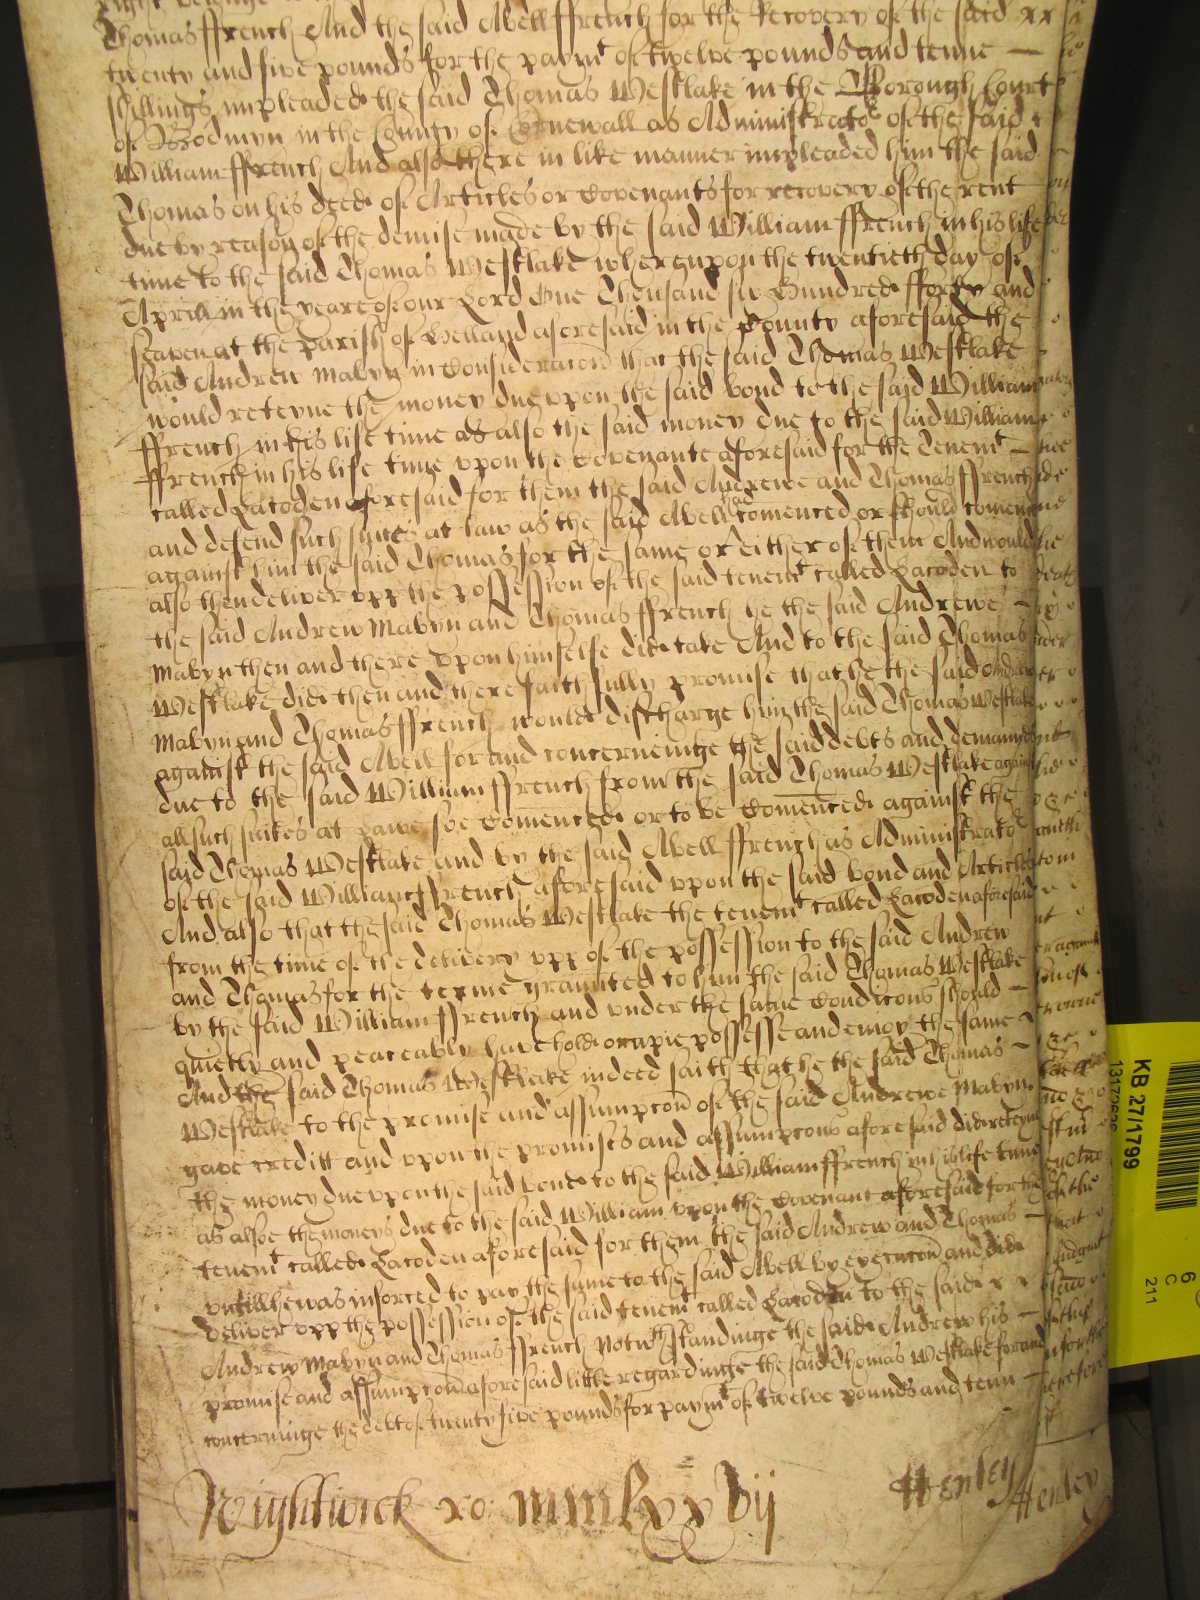 Thomas ffrench And the said Abell ffrench for the Recovery of the said xx
twenty and five pounds for the paymt of twelve pounds and tenne —
shillings impleaded the said Thomas Westlake in the Borough Court
of Bodmyn in the County of Cornewall as Administrator of the said
William ffrench And also there in like manner impleaded him the said
Thomas on his deed of Articles or Covenants for recovery of the rent
due by reason of the demise made by the said William ffrench in his life
time to the said Thomas Westlake whereupon the twentieth day of
Aprill in the yeare of our Lord One Thousand six Hundred fforty and
seaven at the parish of Helland aforesaid in the County aforesaid the
said Andrew Mabyn in Consideracon that the said Thomas Westlake
would reteyne the money due upon the said bond to the said William
ffrench in his life time as also the said money due to the said William
ffrench in his life time upon the Covenante aforesaid for the Tenemt
called Lacoden aforesaid for them the said Andrewe and Thomas ffrench
and defend such suites at law as the said Abell had comenced or should comence
against him the said Thomas for the same or either of them And would
also then deliver upp the possession of the said tenemt called Lacoden to
the said Andrew Mabyn and Thomas ffrench he the said Andrewe —
Mabyn then and there upon himselfe did take And to the said Thomas
Westlake did then and there faithfully promise that he the said Andrew
Mabyn and Thomas ffrench would discharge him the said Thomas Westlake
against the said Abell for and concerneinge the said debts and demannds
due to the said William ffrench from the said Thomas Westlake against
all such suites at Lawe soe Comenced or to be Comenced against the
said Thomas Westlake and by the said Abell ffrench as Administrator
of the said William ffrench aforesaid upon the said bond and Articles
And also that the said Thomas Westlake the tenemt called Lacoden aforesaid
from the time of the delivery upp of the possession to the said Andrew
and Thomas for the terme graunted to him the said Thomas Westlake
by the said William ffrench and under the same Condicons should —
quietly and peaceably have hold occupie possesse and enioy the same
And the said Thomas Westlake indeed saith that he the said Thomas —
Westlake to the promise and assumpcon of the said Andrewe Mabyn
gave creditt and upon the promises and assumpcons aforesaid did reteyne
the money due upon the said bond to the said William ffrench in his life time
as alsoe the moneys due to the said William upon the Covenant aforesaid for the
tenemt called Lacoden aforesaid for them the said Andrew and Thomas —
untill he was inforced to pay the same to the said Abell by execucon and did
deliver upp the possession of the said tenemt called Lacoden to the said x x
Andrew Mabyn and Thomas ffrench Notwthstandinge the said Andrew his —
promise and assumpcon aforesaid little regardinge the said Thomas Westlake for and
concerninge the debt of twenty five pounds for paymt of twelve pounds and tenn —
Wightwick ro: mmlxxvij
Henley
Henley
KB 27/1799
13172636
6
C
211